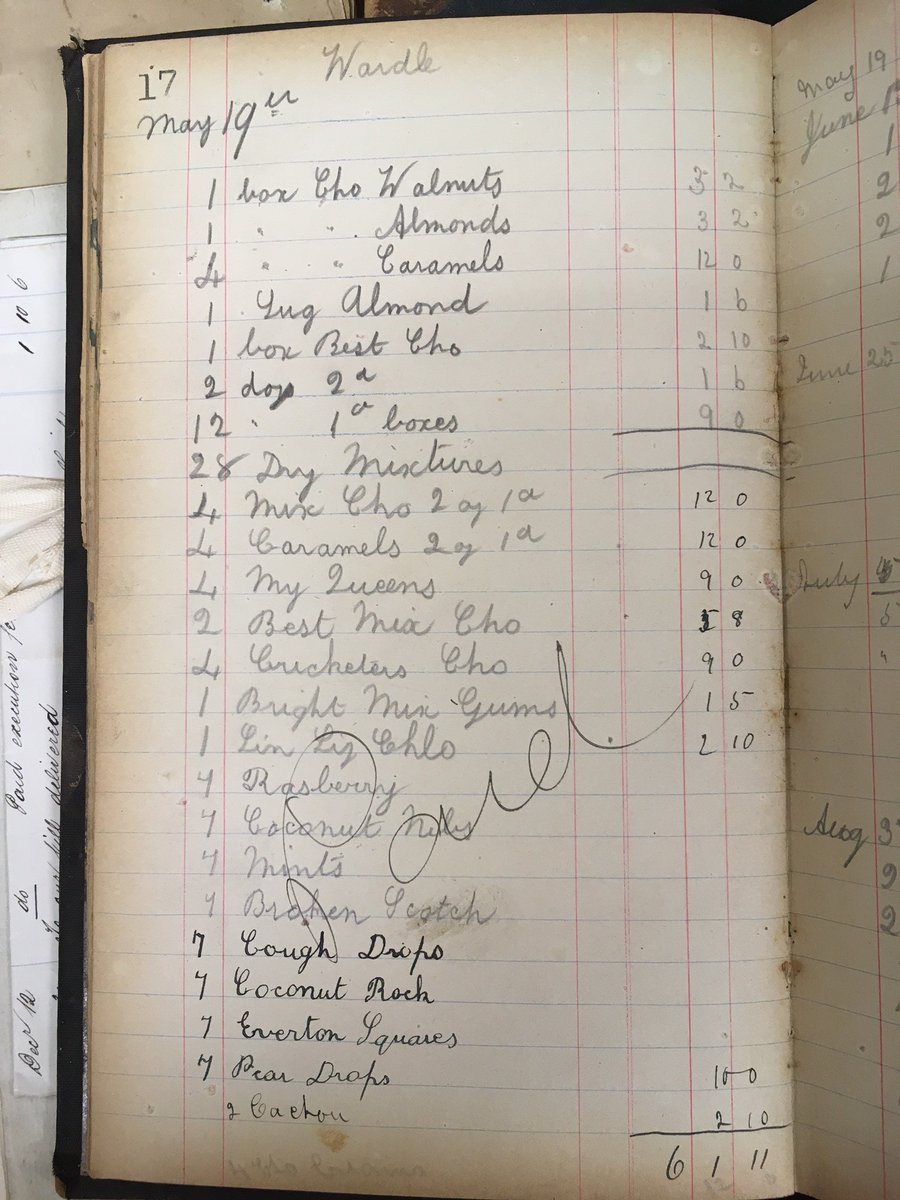 17
Wardle
May 19
1 box Cho Walnuts 3 2
1 " " Almonds 3 2
4 " " Caramels 12 0
1 Almond 1 6
1 box Best Cho 2 10
2 doz 2d 1 6
12 " 1d boxes 9 0
28 Dry Mixtures
4 Mix Cho 2 oz 1d 12 0
4 Caramels 2 oz 1d 12 0
4 My Queens 9 0
2 Best Mix Cho 8
4 Cricketers Cho 9 0
1 Bright Mix Gums 1 5
1 Lin Liq Chlo 2 10
7 Rasberry
7 Coconut Nibs
7 Mints
7 Broken Scotch
7 Cough Drops
7 Coconut Rock
7 Everton Squares
7 Pear Drops 10 0
2 Cachou 2 10
6 1 11
Paid
May 19
June
1
2
2
1
June 25
July
5
"
Aug 3
9
2
1 10 6
Decr 12 do Paid execution
bill delivered